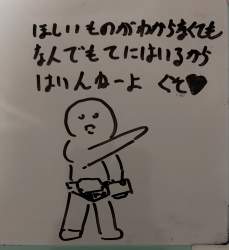 ほしいものがわからなくても
なんでもてにはいるから
はいんねーよ くそ♥